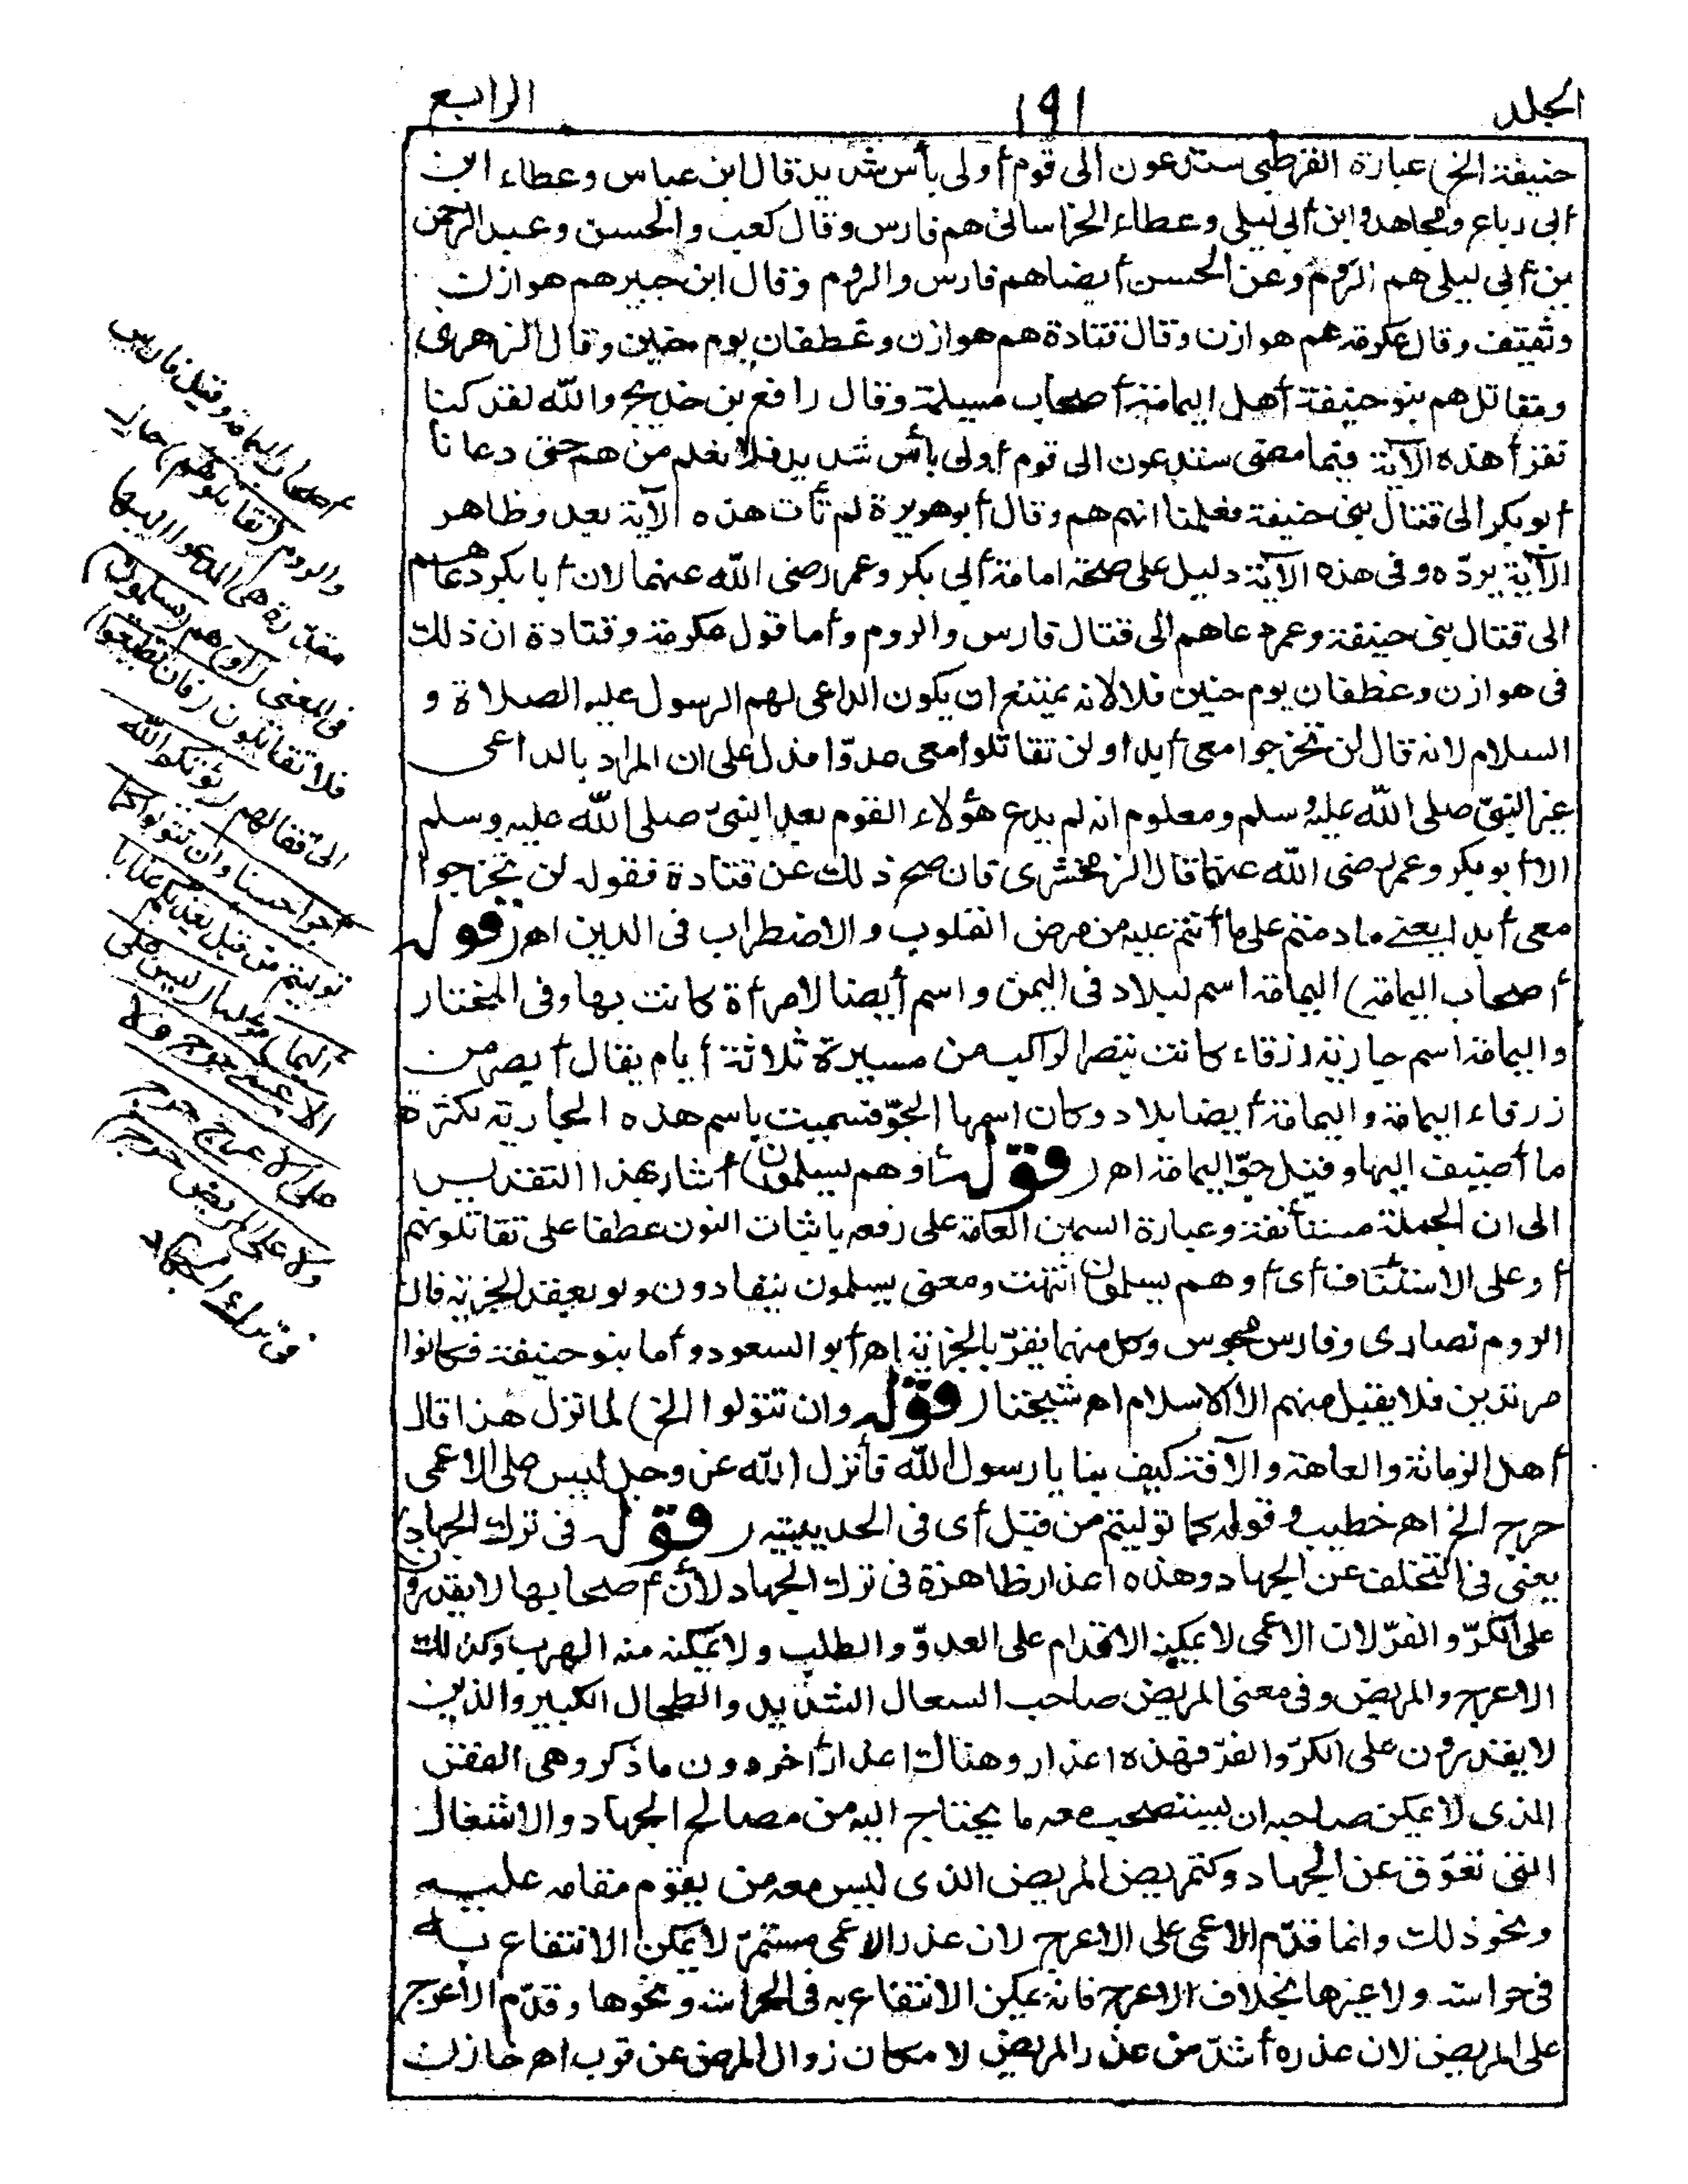 الجلد ١٩١ الرابع
حنيفة الخ) عبارة القرطبي ستدعون الى قوم أولى بأس شديد قال ابن عباس وعطاء ابن
أبى رباح ومجاهد وابن أبى ليلى وعطاء الخراسانى هم فارس وقال كعب والحسن وعبد الرحمن
بن أبى ليلى هم الروم وعن الحسن أيضا هم فارس والروم وقال ابن جبير هم هوازن
وثقيف وقال عكرمة هم هوازن وقال قتادة هم هوازن وغطفان يوم حنين وقال الزهرى
ومقاتل هم بنو حنيفة أهل اليمامة أصحاب مسيلمة وقال رافع بن خديج والله لقد كنا
نقرأ هذه الآية فيما مضى ستدعون الى قوم أولى بأس شديد فلا نعلم من هم حتى دعانا
أبو بكر الى قتال بنى حنيفة فعلمنا انهم هم وقال أبو هريرة لم تأت هذه الآية بعد وظاهر
الآية يردّه وفى هذه الآية دليل على صحة امامة أبى بكر وعمر رضى الله عنهما لان أبا بكر دعاهم
الى قتال بنى حنيفة وعمر دعاهم الى قتال فارس والروم وأما قول عكرمة وقتادة ان ذلك
فى هوازن وغطفان يوم حنين فلا لانه يمتنع ان يكون الداعى لهم الرسول عليه الصلاة و
السلام لانه قال لن تخرجوا معى أبدا ولن تقاتلوا معى عدوّا فدل على ان المراد بالداعى
غير النبىّ صلى الله عليه وسلم ومعلوم انه لم يدع هؤلاء القوم بعد النبىّ صلى الله عليه وسلم
الا أبو بكر وعمر رضى الله عنهما قال الزمخشرى فان صح ذلك عن قتادة فقوله لن تخرجوا
معى أبدا يعنى ما دمتم على ما أنتم عليه من مرض القلوب والاضطراب فى الدين اهـ (قوله
أصحاب اليمامة) اليمامة اسم لبلاد فى اليمن واسم أيضا لامرأة كانت بها وفى المختار
واليمامة اسم جارية زرقاء كانت تبصر الراكب من مسيرة ثلاثة أيام يقال أبصر من
زرقاء اليمامة واليمامة أيضا بلاد وكان اسمها الجوّ فسميت باسم هذه الجارية لكثرة
ما أضيف اليها وقيل جوّ اليمامة اهـ (قوله أو هم يسلمون) أشار بهذا التقدير
الى ان الجملة مستأنفة وعبارة السمين العامة على رفعه باثبات النون عطفا على تقاتلونهم
أو على الاستئناف أى أو هم يسلمون انتهت ومعنى يسلمون ينقادون ولو بعقد الجزية فان
الروم نصارى وفارس مجوس وكل منهما يقرّ بالجزية اهـ أبو السعود وأما بنو حنيفة فكانوا
مرتدين فلا يقبل منهم الا الاسلام اهـ شيخنا (قوله وان تتولوا الخ) لما نزل هذا قال
أهل الزمانة والعاهة والآفة كيف بنا يا رسول الله فأنزل الله عز وجل ليس على الاعمى
حرج الخ اهـ خطيب وقوله كما توليتم من قبل أى فى الحديبية (قوله فى ترك الجهاد)
يعنى فى التخلف عن الجهاد وهذه اعذار ظاهرة فى ترك الجهاد لأن أصحابها لا يقدرون
على الكرّ والفرّ لان الاعمى لا يمكنه الاقدام على العدوّ والطلب ولا يمكنه منه الهرب وكذلك
الاعرج والمريض وفى معنى المريض صاحب السعال الشديد والطحال الكبير والذين
لا يقدرون على الكرّ والفرّ فهذه اعذار وهناك اعذار أخر دون ما ذكر وهى الفقر
الذى لا يمكن صاحبه ان يستصحب معه ما يحتاج اليه من مصالح الجهاد والاشتغال
التى تعوّق عن الجهاد وكتمريض المريض الذى ليس معه من يقوم مقامه عليه
ونحو ذلك وانما قدّم الاعمى على الاعرج لان عذر الاعمى مستمرّ لا يمكن الانتفاع به
فى حراسة ولا غيرها بخلاف الاعرج فانه يمكن الانتفاع به فى الحراسة ونحوها وقدّم الاعرج
على المريض لان عذره أشدّ من عذر المريض لامكان زوال المرض عن قرب اهـ خازن
أصحاب اليمامة وقيل فارس
والروم (تقاتلونهم) حال
مقدّرة هى المدعو اليها
فى المعنى (أو) هم (يسلمون)
فلا تقاتلون (فان تطيعوا)
الى قتالهم (يؤتكم الله
أجرا حسنا وان تتولوا كما
توليتم من قبل يعذبكم عذابا
أليما) مؤلما (ليس على
الاعمى حرج ولا
على الاعرج حرج
ولا على المريض حرج)
فى ترك الجهاد